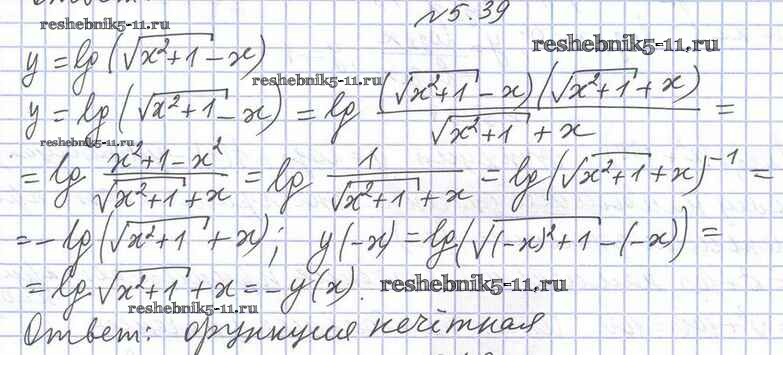 №5.39
reshebnik5-11.ru
y = lg(√(x²+1) - x)
reshebnik5-11.ru
reshebnik5-11.ru
y = lg(√(x²+1) - x) = lg ((√(x²+1) - x)(√(x²+1) + x))/(√(x²+1) + x) =
reshebnik5-11.ru
= lg (x²+1-x²)/(√(x²+1) + x) = lg 1/(√(x²+1) + x) = lg(√(x²+1) + x)⁻¹ =
= -lg(√(x²+1) + x); y(-x) = lg(√((-x)²+1) - (-x)) =
= lg √(x²+1) + x = -y(x).
reshebnik5-11.ru
reshebnik5-11.ru
Ответ: функция нечётная